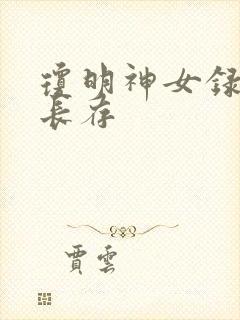 瓊明神女録
長存
賈雲